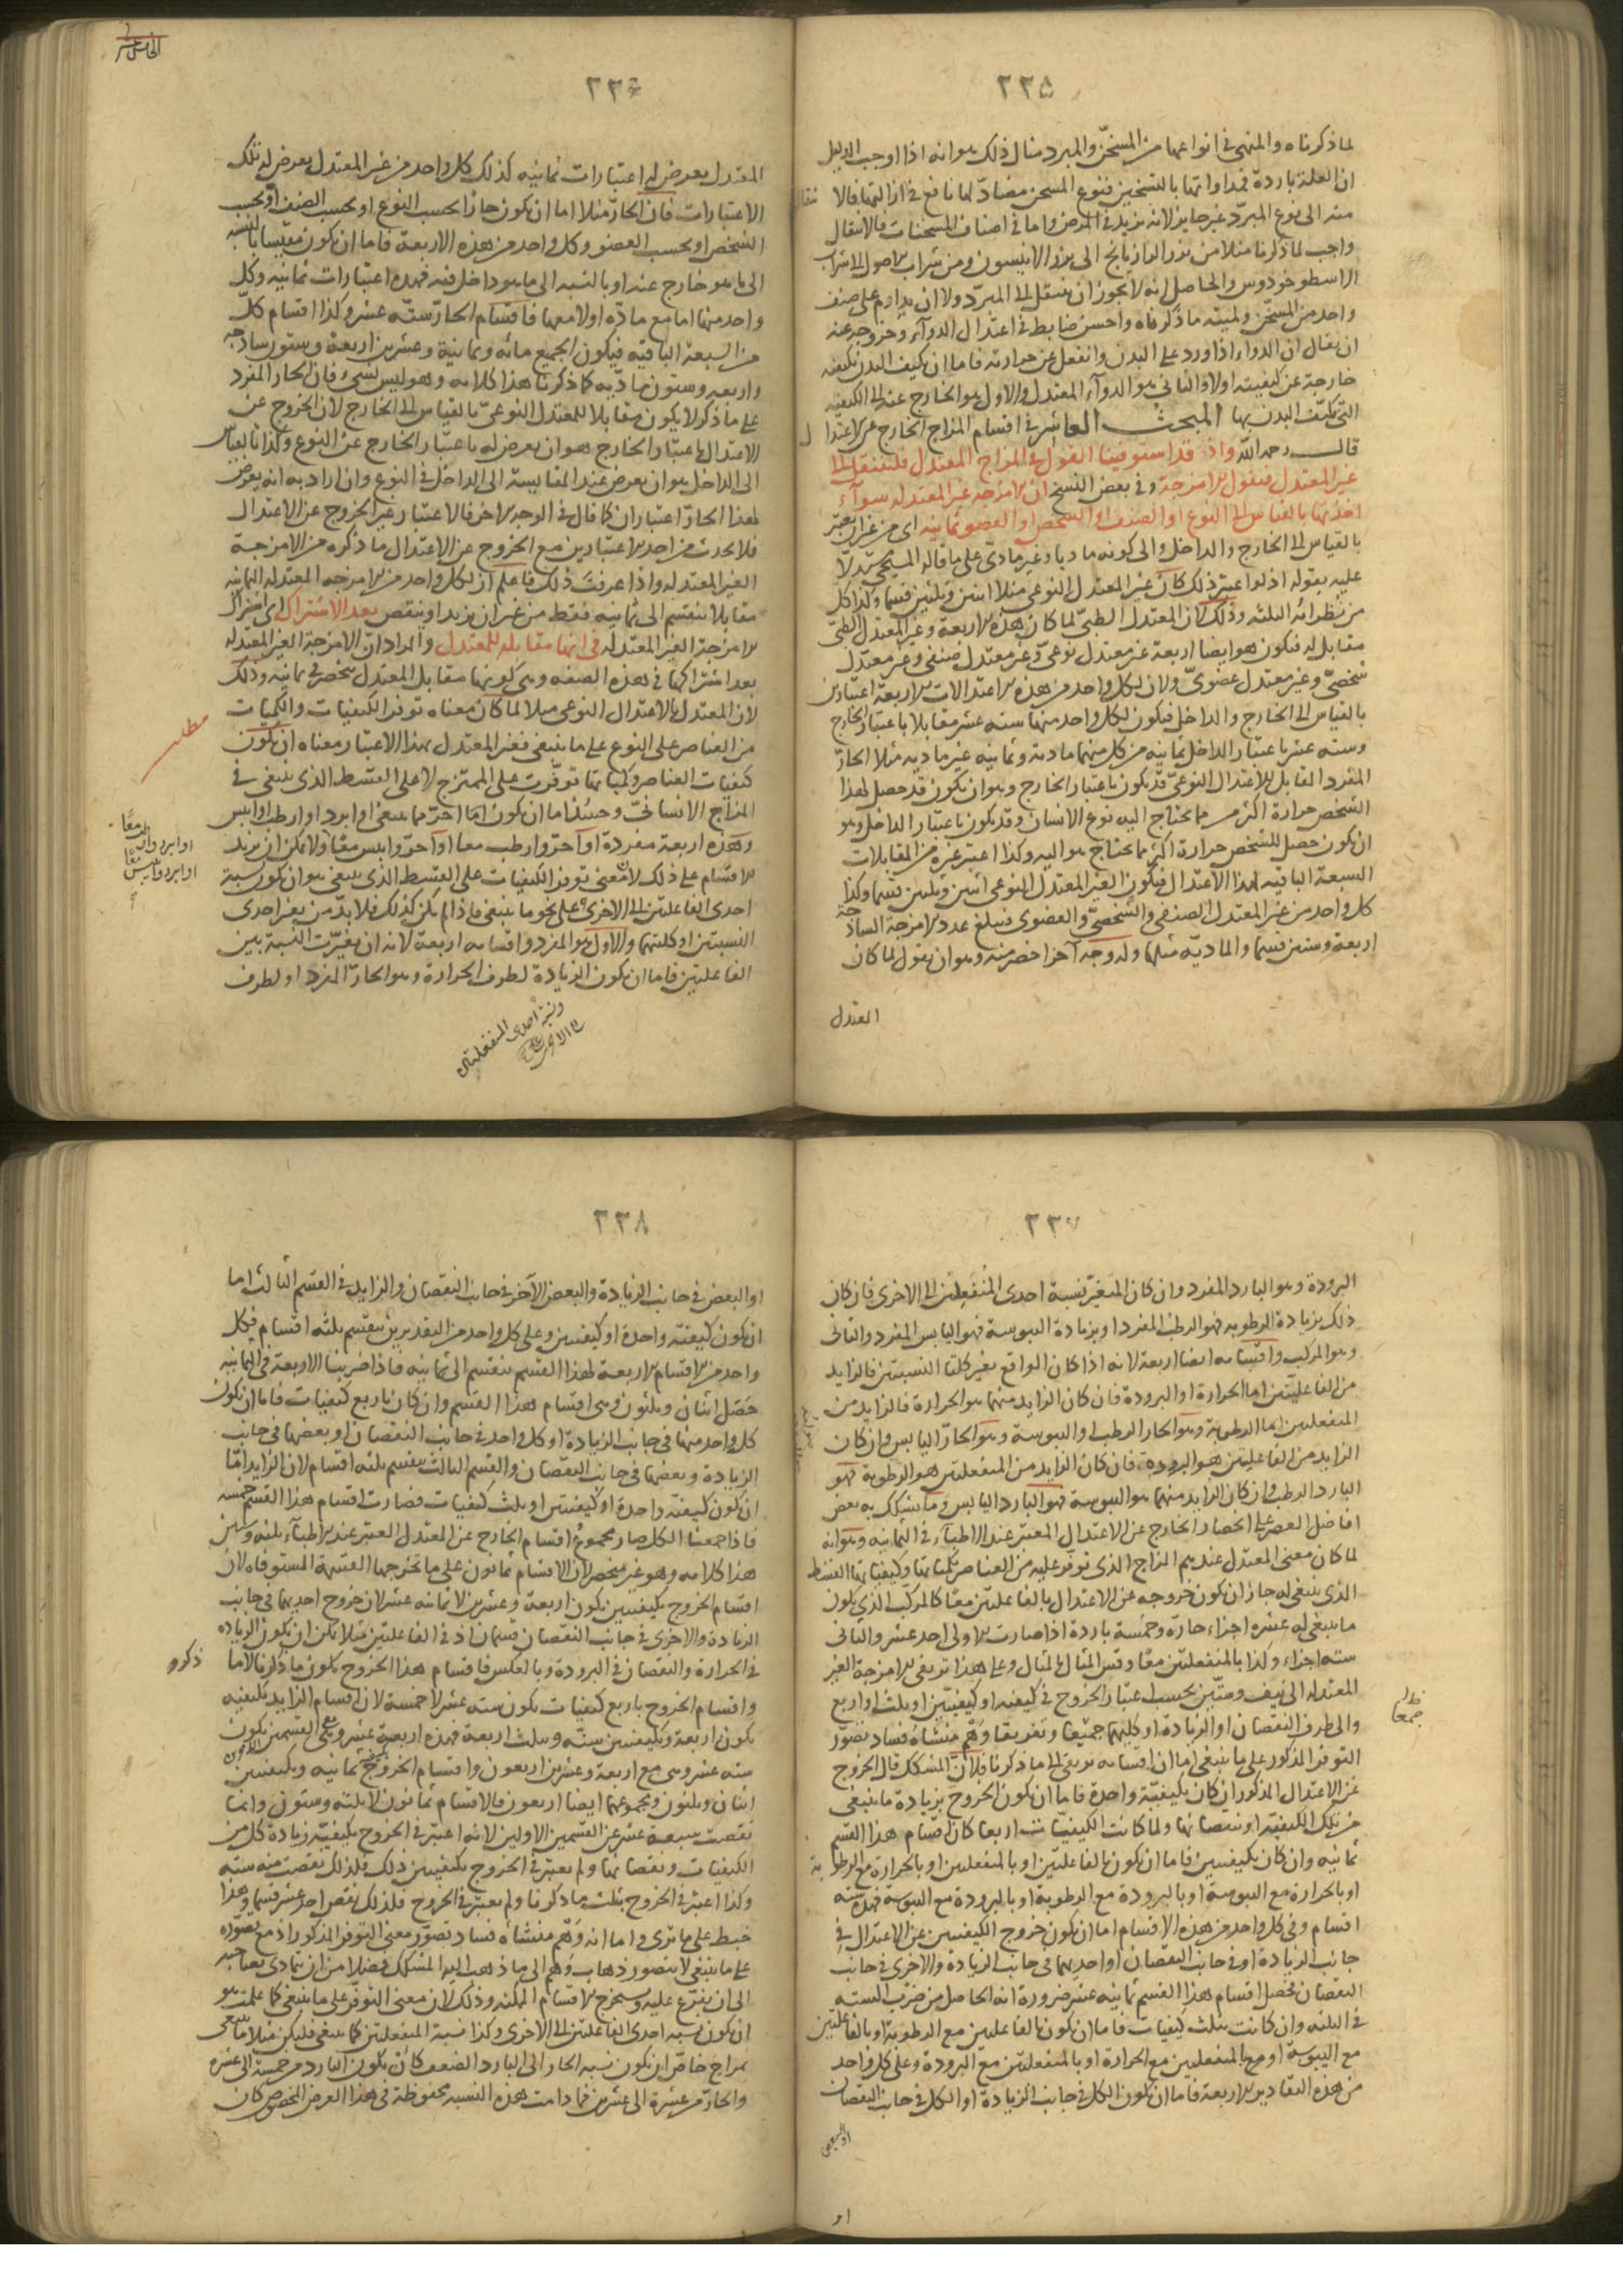 ٢٢٥
لما ذكرناه والمنهى فى انواعها من المسخّن والمبرد مثال ذلك هو انه اذا اوجب الدليل
ان العلة باردة فمداواتها بالتسخين فنوع المسخن مضادّ لها نافع فى ازالتها فالانتقال
منه الى نوع المبرّد غير جايز لانه يزيد فى المرض واما فى اصناف المسخنات فالانتقال
واجب لما ذكرنا مثلا من بزر الرازيانج الى بزر الانيسون ومن شراب الاصول الى شراب
الاسطوخودوس والحاصل انه لا يجوز ان ينتقل الى المبرّد ولا ان يداوم على صنف
واحد من المسخّن ولميته ما ذكرناه واحسن ضابط فى اعتدال الدوآء وخروجه عنه
ان يقال ان الدواء اذا ورد على البدن وانفعل عن حرارته فاما ان يكيف البدن بكيفيه
خارجة عن كيفيته اولا والثانى هو الدوآء المعتدل والاول هو الخارج عنه الى الكيفيه
التى يكيّف البدن بها المبحث العاشر فى اقسام المزاج الخارج عن الاعتدال
قال رحمه الله واذ قد استوفينا القول فى المزاج المعتدل فلننتقل الى
غير المعتدل فنقول الامزجة وفى بعض النسخ ان الامزجه غير المعتدله سوآء
اخذتها بالقياس الى النوع او الصنف او الشخص او العضو ثمانيه اى من غير ان يعتبر
بالقياس الى الخارج والداخل والى كونه ماديا وغير مادىّ على ما قاله المسيحى يدلّ
عليه بقوله اذ لو اعتبر ذلك كان غير المعتدل النوعى مثلا اثنين وثلثين قسما وكذا كل
من نظرائه الثلثه وذلك لان المعتدل الطبىّ لما كان بهذه الاربعة وغير المعتدل الطبىّ
مقابل له فيكون هو ايضا اربعة غير معتدل نوعىّ وغير معتدل صنفى وغير معتدل
شخصىّ وغير معتدل عضوىّ ولان لكل واحد من هذه الاعتدالات الاربعة اعتبارين
بالقياس الى الخارج والداخل فيكون لكل واحد منها سته عشر مقابلا باعتبار الخارج
وسته عشر باعتبار الداخل ثمانيه من كل منهما مادية وثمانيه غير ماديه مثلا الحارّ
المفرد المقابل للاعتدال النوعىّ قد يكون باعتبار الخارج وهو ان يكون قد حصل لهذا
الشخص حرارة اكثر مما يحتاج اليه نوع الانسان وقد يكون باعتبار الداخل وهو
ان يكون حصل للشخص حرارة اكثر مما يحتاج هو اليه وكذا اعتبر غيره من المقابلات
السبعة الباقيه لهذا الاعتدال فيكون الغير المعتدل النوعى اثنين وثلثين قسما وكذا
كل واحد من غير المعتدل الصنفى والشخصىّ والعضوى فيبلغ عدد الامزجة الساذجة
اربعة وستين قسما والماديّه مثلها وله وجه آخر اخصر منه وهو ان يقول لما كان
المعتدل
٢٢٦
المعتدل يعرض له اعتبارات ثمانيه كذلك كل واحد من غير المعتدل يعرض له تلك
الاعتبارات فان الحارّ مثلا اما ان يكون حارّا بحسب النوع او بحسب الصنف او بحسب
الشخص او بحسب العضو وكل واحد من هذه الاربعة فاما ان يكون مقيسا بالنسبة
الى ما هو خارج عنه او بالنسبه الى ما هو داخل فيه فهذه اعتبارات ثمانيه وكل
واحد منها اما مع مادّه او لا معها فاقسام الحارّ ستّه عشر وكذا اقسام كلّ
من السبعة الباقيه فيكون الجميع مائه وثمانية وعشرين اربعة وستون ساذجه
واربعه وستون ماديّه كما ذكرنا هذا كلامه وهو ليس بشىء فان الحار المفرد
على ما ذكر لا يكون مقابلا للمعتدل النوعىّ بالقياس الى الخارج لان الخروج عن
الاعتدال باعتبار الخارج هو ان يعرض له باعتبار الخارج عن النوع وكذا بالقياس
الى الداخل هو ان يعرض عند المقايسة الى الداخل فى النوع وان اراد به انه يعرض
لهذا الحارّ اعتباران كما قال فى الوجه الاخر فالاعتبار غير الخروج عن الاعتدال
فلا يحدث من احد الاعتبارين مع الخروج عن الاعتدال ما ذكره من الامزجة
الغير المعتدله واذا عرفت ذلك فاعلم ان لكل واحد من الامزجه المعتدله الثمانيه
مقابلا ينقسم الى ثمانيه فقط من غير ان يزيد او ينقص بعد الاشتراك اى اشتراك
الامزجة الغير المعتدله فى انها مقابله للمعتدل والمراد ان الامزجة الغير المعتدله
بعد اشتراكها فى هذه الصفه وهى كونها مقابل المعتدل تنحصر فى ثمانيه وذلك
لان المعتدل بالاعتدال النوعى مثلا لما كان معناه توفر الكيفيات والكميات
من العناصر على النوع على ما ينبغى فغير المعتدل بهذا الاعتبار معناه ان يكون
كيفيات العناصر وكمياتها توفّرت على الممتزج لا على القسط الذى ينبغى فى
المزاج الانسانىّ وحينئذ اما ان يكون امّا احرّ مما ينبغى او ابرد او ارطب او ايبس
وهذه اربعة مفردة او احرّ وارطب معا او احرّ وايبس معًا ولا يمكن ان يزيد
الاقسام على ذلك لان معنى توفر الكيفيات على القسط الذى ينبغى هو ان يكون نسبة
احدى الفاعلتين الى الاخرى على نحو ما ينبغى فاذا لم يكن كذلك فلا بدّ من تغير احدى
النسبتين او كلتيهما والاول هو المفرد واقسامه اربعة لانه ان تغيّرت النسبة بين
الفاعلتين فاما ان يكون الزيادة لطرف الحرارة وهو الحارّ المفرد او لطرف
مطلب
او ابرد وارطب معًا
او ابرد وايبس معًا
ونسبة احدى المنفعلتين
الى الاخرى
٢٢٧
البرودة وهو البارد المفرد وان كان المتغيّر نسبة احدى المنفعلتين الى الاخرى فان كان
ذلك بزيادة الرطوبه فهو الرطب المفرد او بزيادة اليبوسة فهو اليابس المفرد والثانى
وهو المركب واقسامه ايضا اربعة لانه اذا كان الواقع تغير كلتا النسبتين فالزايد
من الفاعليتين اما الحرارة او البرودة فان كان الزايد منهما هو الحرارة فالزايد من
المنفعلتين اما الرطوبة وهو الحار الرطب او اليبوسة وهو الحارّ اليابس وان كان
الزايد من الفاعليتين هو البرودة فان كان الزايد من المنفعلتين هو الرطوبة فهو
البارد الرطب وان كان الزايد منهما هو اليبوسة فهو البارد اليابس وما يشكك به بعض
افاضل العصر على انحصار الخارج عن الاعتدال المعتبر عند الاطبآء فى الثمانيه وهو انه
لما كان معنى المعتدل عندهم المزاج الذى توفر عليه من العناصر بكمياتها وكيفياتها القسط
الذى ينبغى له جاز ان يكون خروجه عن الاعتدال بالفاعلتين معًا كالمركب الذى يكون
ما ينبغى له عشره اجزاء حارّه وخمسة باردة اذا صارت الاولى احد عشر والثانى
سته اجزاء وكذا بالمنفعلتين معًا وقس المثال بالمثال وعلى هذا ترتقى الامزجة الغير
المعتدله الى نيف وستّين بحسب اعتبار الخروج فى كيفيه او كيفيتين او بثلث او اربع
والى طرف النقصان او الزيادة او كليهما جميعا وتفريقا وَهْم منشاؤه فساد تصوّر
التوفر المذكور على ما ينبغى اما ان اقسامه ترتقى الى ما ذكرنا فلان المشكك قال الخروج
عن الاعتدال المذكور ان كان بكيفية واحدة فاما ان يكون الخروج بزيادة ما ينبغى
من تلك الكيفيه او نقصانها ولما كانت الكيفيات اربعا كان اقسام هذا القسم
ثمانيه وان كان بكيفيتين فاما ان يكون بالفاعليتين او بالمنفعلتين او بالحرارة مع الرطوبة
او بالحرارة مع اليبوسة او بالبرودة مع الرطوبة او بالبرودة مع اليبوسة فهذه سته
اقسام وفى كل واحد من هذه الاقسام اما ان يكون خروج الكيفيتين عن الاعتدال فى
جانب الزيادة او فى جانب النقصان او احديهما فى جانب الزيادة والاخرى فى جانب
النقصان فحصل اقسام هذا القسم ثمانيه عشر ضرورة انه الحاصل من ضرب الستة
فى الثلثه وان كانت بثلث كيفيات فاما ان يكون بالفاعليتين مع الرطوبة او بالفاعلتين
مع اليبوسة او مع المنفعلتين مع الحرارة او بالمنفعلتين مع البرودة وعلى كل واحد
من هذه التقادير الاربعة فاما ان يكون الكل فى جانب الزيادة او الكل فى جانب النقصان
او البعض
٢٢٨
او البعض فى جانب الزيادة والبعض الآخر فى جانب النقصان والزايد فى القسم الثالث اما
ان يكون كيفيّه واحدة او كيفيتين وعلى كل واحد من التقديرين ينقسم بثلثه اقسام فكل
واحد من الاقسام الاربعة لهذا القسم ينقسم الى ثمانيه فاذا ضربنا الاربعة فى الثمانيه
حَصَل اثنان وثلثون وهى اقسام هذا القسم وان كان باربع كيفيات فاما ان يكون
كل واحد منها فى جانب الزيادة او كل واحد فى جانب النقصان او بعضها فى جانب
الزيادة وبعضها فى جانب النقصان والقسم الثالث ينقسم بثلثه اقسام لان الزايد امّا
ان يكون كيفيّه واحدة او كيفيتين او بثلث كيفيات فصارت اقسام هذا القسم خمسه
فاذا جمعنا الكل صار مجموع اقسام الخارج عن المعتدل المعتبر عند الاطبآء ثلثه وستين
هذا كلامه وهو غير منحصر لان الاقسام ثمانون على ما تخرجها القسمة المستوفاه لان
اقسام الخروج بكيفيتين يكون اربعة وعشرين لا ثمانيه عشر لان خروج احديهما فى جانب
الزيادة والاخرى فى جانب النقصان قسمان اذ فى الفاعلتين مثلا يمكن ان يكون الزيادة
فى الحرارة والنقصان فى البرودة وبالعكس فاقسام هذا الخروج يكون ما ذكرنا لا ما
واقسام الخروج باربع كيفيات يكون سته عشر لا خمسة لان اقسام الزايد بكيفيه
يكون اربعة وبكيفيتين ستّه وبثلث اربعة فهذه اربعة عشر ومع القسمين يكون
سته عشر وهى مع اربعة وعشرين اربعون واقسام الخروج بكيفيه ثمانيه وبكيفيتين
اثنان وثلثون ومجموعهما ايضا اربعون فالاقسام ثمانون لا ثلثه وستون وانما
نقصت سبعة عشر عن القسمين الاولين لانه اعتبر فى الخروج بكيفيّة زيادة كل من
الكيفيات ونقصانها ولم يعتبر فى الخروج بكيفيتين ذلك فلذلك نقصت منه سته
وكذا اعتبر فى الخروج بثلث ما ذكرنا ولم يعتبر فى الخروج فلذلك نقص احد عشر قسما وهذا
خبط على ما ترى واما انه وَهْم منشاه فساد تصوّر معنى التوفر المذكور اذ مع تصوّره
على ما ينبغى لا يتصور ذهاب وهم الى ما ذهب اليه المشكك فضلا من ان يتمادى بصاحبه
الى ان يفرّع عليه ويستخرج الاقسام الممكنه وذلك لان معنى التوفّر على ما ينبغى كما علمت هو
ان يكون نسبه احدى الفاعلتين الى الاخرى وكذا نسبة المنفعلتين كما ينبغى فليكن مثلا ما ينبغى
بمزاج خاصّ ان يكون نسبه الحار الى البارد الضعف كان يكون البارد من خمسة الى عشره
والحارّ من عشرة الى عشرين فما دامت هذه النسبه محفوظة فى هذا العرض المخصوص كان
ذكره